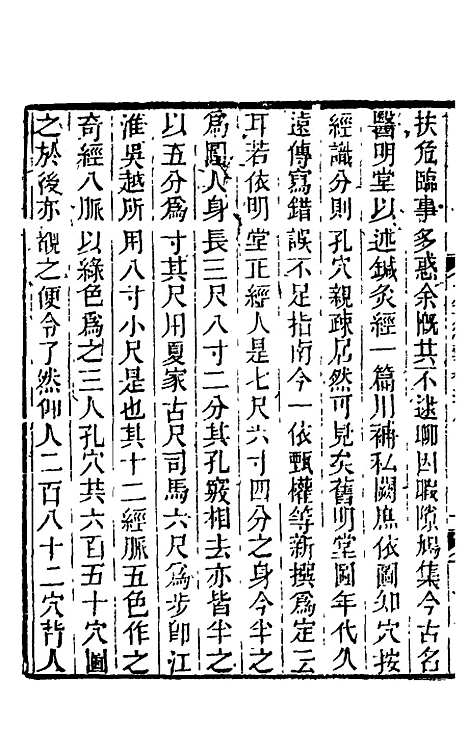 扶危臨事多惑余慨其不逮聊因暇隙鳩集今古名
醫明堂以述鍼灸經一篇用補私闕庶依圖知穴按
經識分則孔穴親疎居然可見矣舊明堂圖年代久
遠傳寫錯誤不足指南今一依甄權等新撰爲定云
耳若依明堂正經人是七尺六寸四分之身今半之
爲圖人身長三尺八寸二分其孔竅相去亦皆半之
以五分爲寸其尺用夏家古尺司馬六尺爲步即江
淮吳越所用八寸小尺是也其十二經脈五色作之
奇經八脈以綠色爲之三人孔穴共六百五十穴圖
之於後亦覩之便令了然仰人二百八十二穴背人